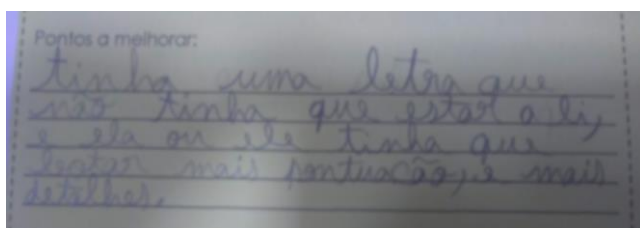 Pontos a melhorar:
tinha uma letra que
não tinha que estar a li,
e ela ou ele tinha que
botar mais pontuação, e mais
detalhes.